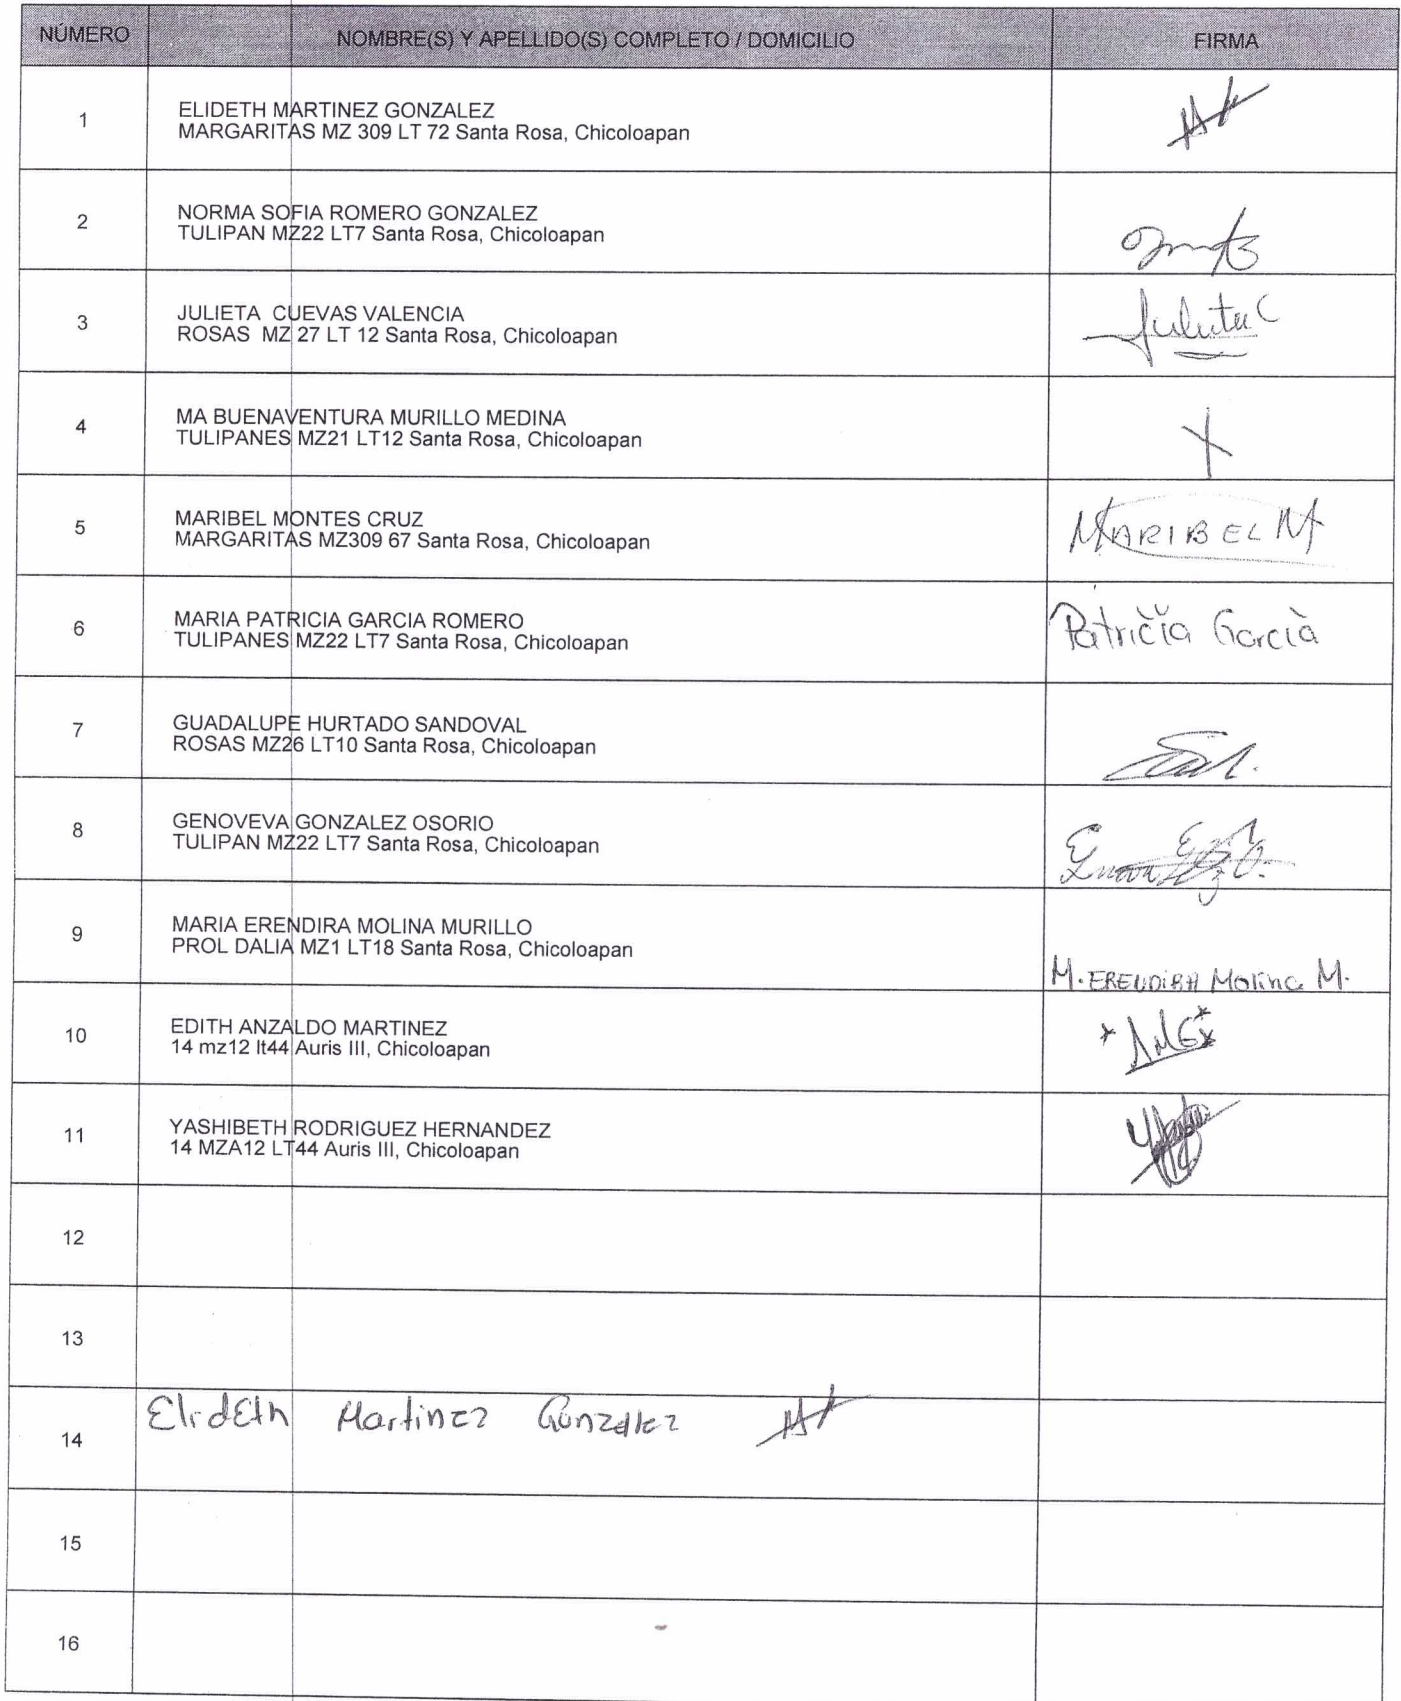 NÚMERO NOMBRE(S) Y APELLIDO(S) COMPLETO / DOMICILIO FIRMA
1 ELIDETH MARTINEZ GONZALEZ
MARGARITAS MZ 309 LT 72 Santa Rosa, Chicoloapan
2 NORMA SOFIA ROMERO GONZALEZ
TULIPAN MZ22 LT7 Santa Rosa, Chicoloapan
3 JULIETA CUEVAS VALENCIA
ROSAS MZ 27 LT 12 Santa Rosa, Chicoloapan
Julieta C
4 MA BUENAVENTURA MURILLO MEDINA
TULIPANES MZ21 LT12 Santa Rosa, Chicoloapan
5 MARIBEL MONTES CRUZ
MARGARITAS MZ309 67 Santa Rosa, Chicoloapan
MARIBEL M
6 MARIA PATRICIA GARCIA ROMERO
TULIPANES MZ22 LT7 Santa Rosa, Chicoloapan
Patricia Garcià
7 GUADALUPE HURTADO SANDOVAL
ROSAS MZ26 LT10 Santa Rosa, Chicoloapan
8 GENOVEVA GONZALEZ OSORIO
TULIPAN MZ22 LT7 Santa Rosa, Chicoloapan
9 MARIA ERENDIRA MOLINA MURILLO
PROL DALIA MZ1 LT18 Santa Rosa, Chicoloapan
M. ERENDIRA Molina M.
10 EDITH ANZALDO MARTINEZ
14 mz12 lt44 Auris III, Chicoloapan
11 YASHIBETH RODRIGUEZ HERNANDEZ
14 MZA12 LT44 Auris III, Chicoloapan
12
13
14 ElidEth Martinez Gonzalez
15
16